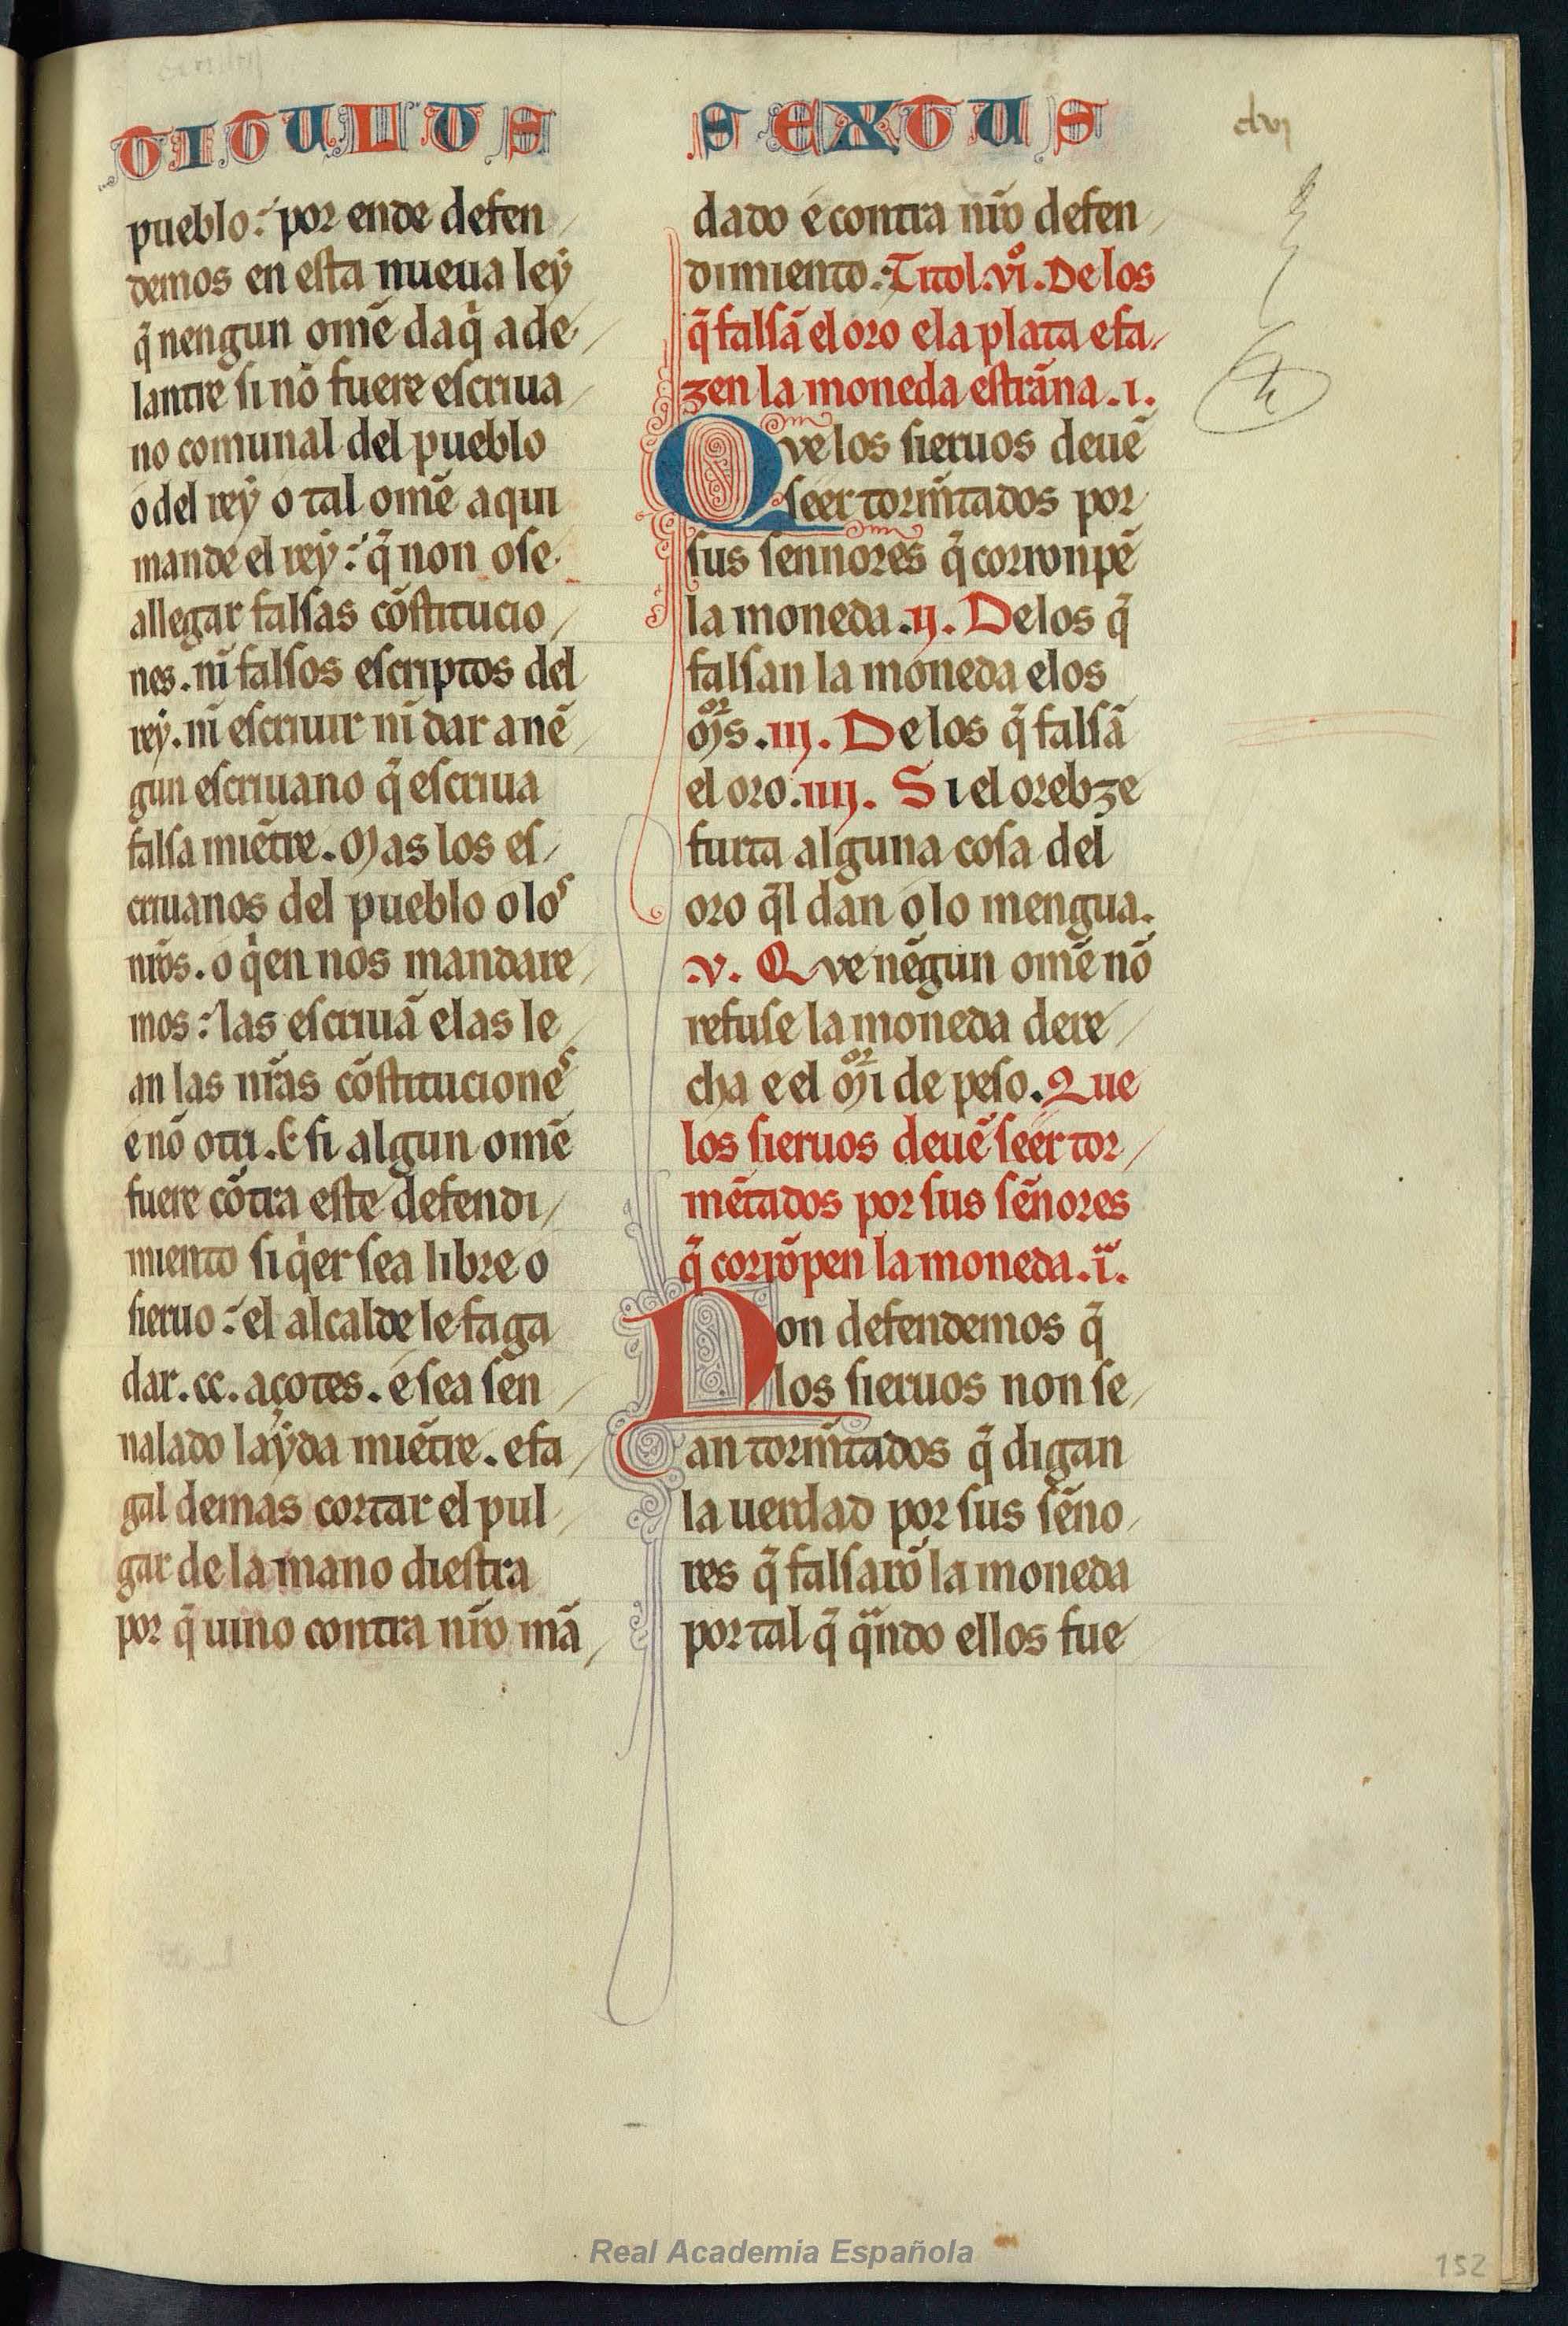 TITULUS SEXTUS
clvi
pueblo: por ende defen/
demos en esta nueua leẏ
q̃ nengun omẽ daq̃ ade/
lantre si nõ fuere escriua/
no comunal del pueblo
o del reẏ o tal omẽ a qui
mande el reẏ: q̃ non ose
allegar falsas cõstitucio/
nes. nĩ falsos escriptos del
reẏ. nĩ escriuir nĩ dar a nẽ/
gun escriuano q̃ escriua
falsa miẽtre. Mas los es/
criuanos del pueblo o los
nr̃os. o q̃en nos mandare/
mos: las escriuã e las le/
an las nr̃as cõstituciones
e nõ otri. E si algun omẽ
fuere cõtra este defendi/
miento si q̃er sea libre o
sieruo: el alcalde le faga
dar. cc. açotes. e sea sen/
nalado laẏda miẽtre. e fa/
gal demas cortar el pul/
gar de la mano diestra
por q̃ uino contra nr̃o mã/
dado e contra nr̃o defen/
dimiento. Titol. viͦ. De los
q̃ falsã el oro e la plata e fa/
zen la moneda estrãna. i.
Que los sieruos deuẽ
seer torm̃tados por
sus sennores q̃ corronpẽ
la moneda. ij. De los q̃
falsan la moneda e los
mr̃s. iij. De los q̃ falsã
el oro. iiij. Si el orebze
furta alguna cosa del
oro q̃l dan o lo mengua.
v. Que nẽgun omẽ nõ
refuse la moneda dere/
cha e el mr̃i de peso. Que
los sieruos deuẽ seer tor/
mẽtados por sus sẽnores
q̃ corrõpen la moneda. i.ª
Non defendemos q̃
los sieruos non se/
an torm̃tados q̃ digan
la uerdad por sus sẽno/
res q̃ falsarõ la moneda
por tal q̃ q̃ndo ellos fue/
Real Academia Española
152